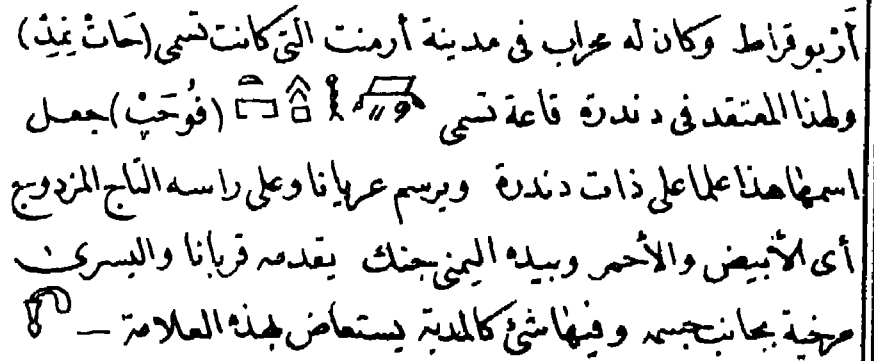 أزبوقراط وكان له محراب فى مدينة أرمنت التى كانت تسمى (حَاتْ نِمِدْ)
ولهذا المعتقد فى دندرة قاعة تسمى (فُوحَبْ) جعل
اسمها هذا علما على ذات دندرة ويرسم عريانا وعلى راسه التاج المزدوج
أى الأبيض والأحمر وبيده اليمنى جنك يقدمه قربانا واليسرى
مرخية بجانب جسمه وفيها شئ كالمدية يستعاض بهذه العلامة ــ